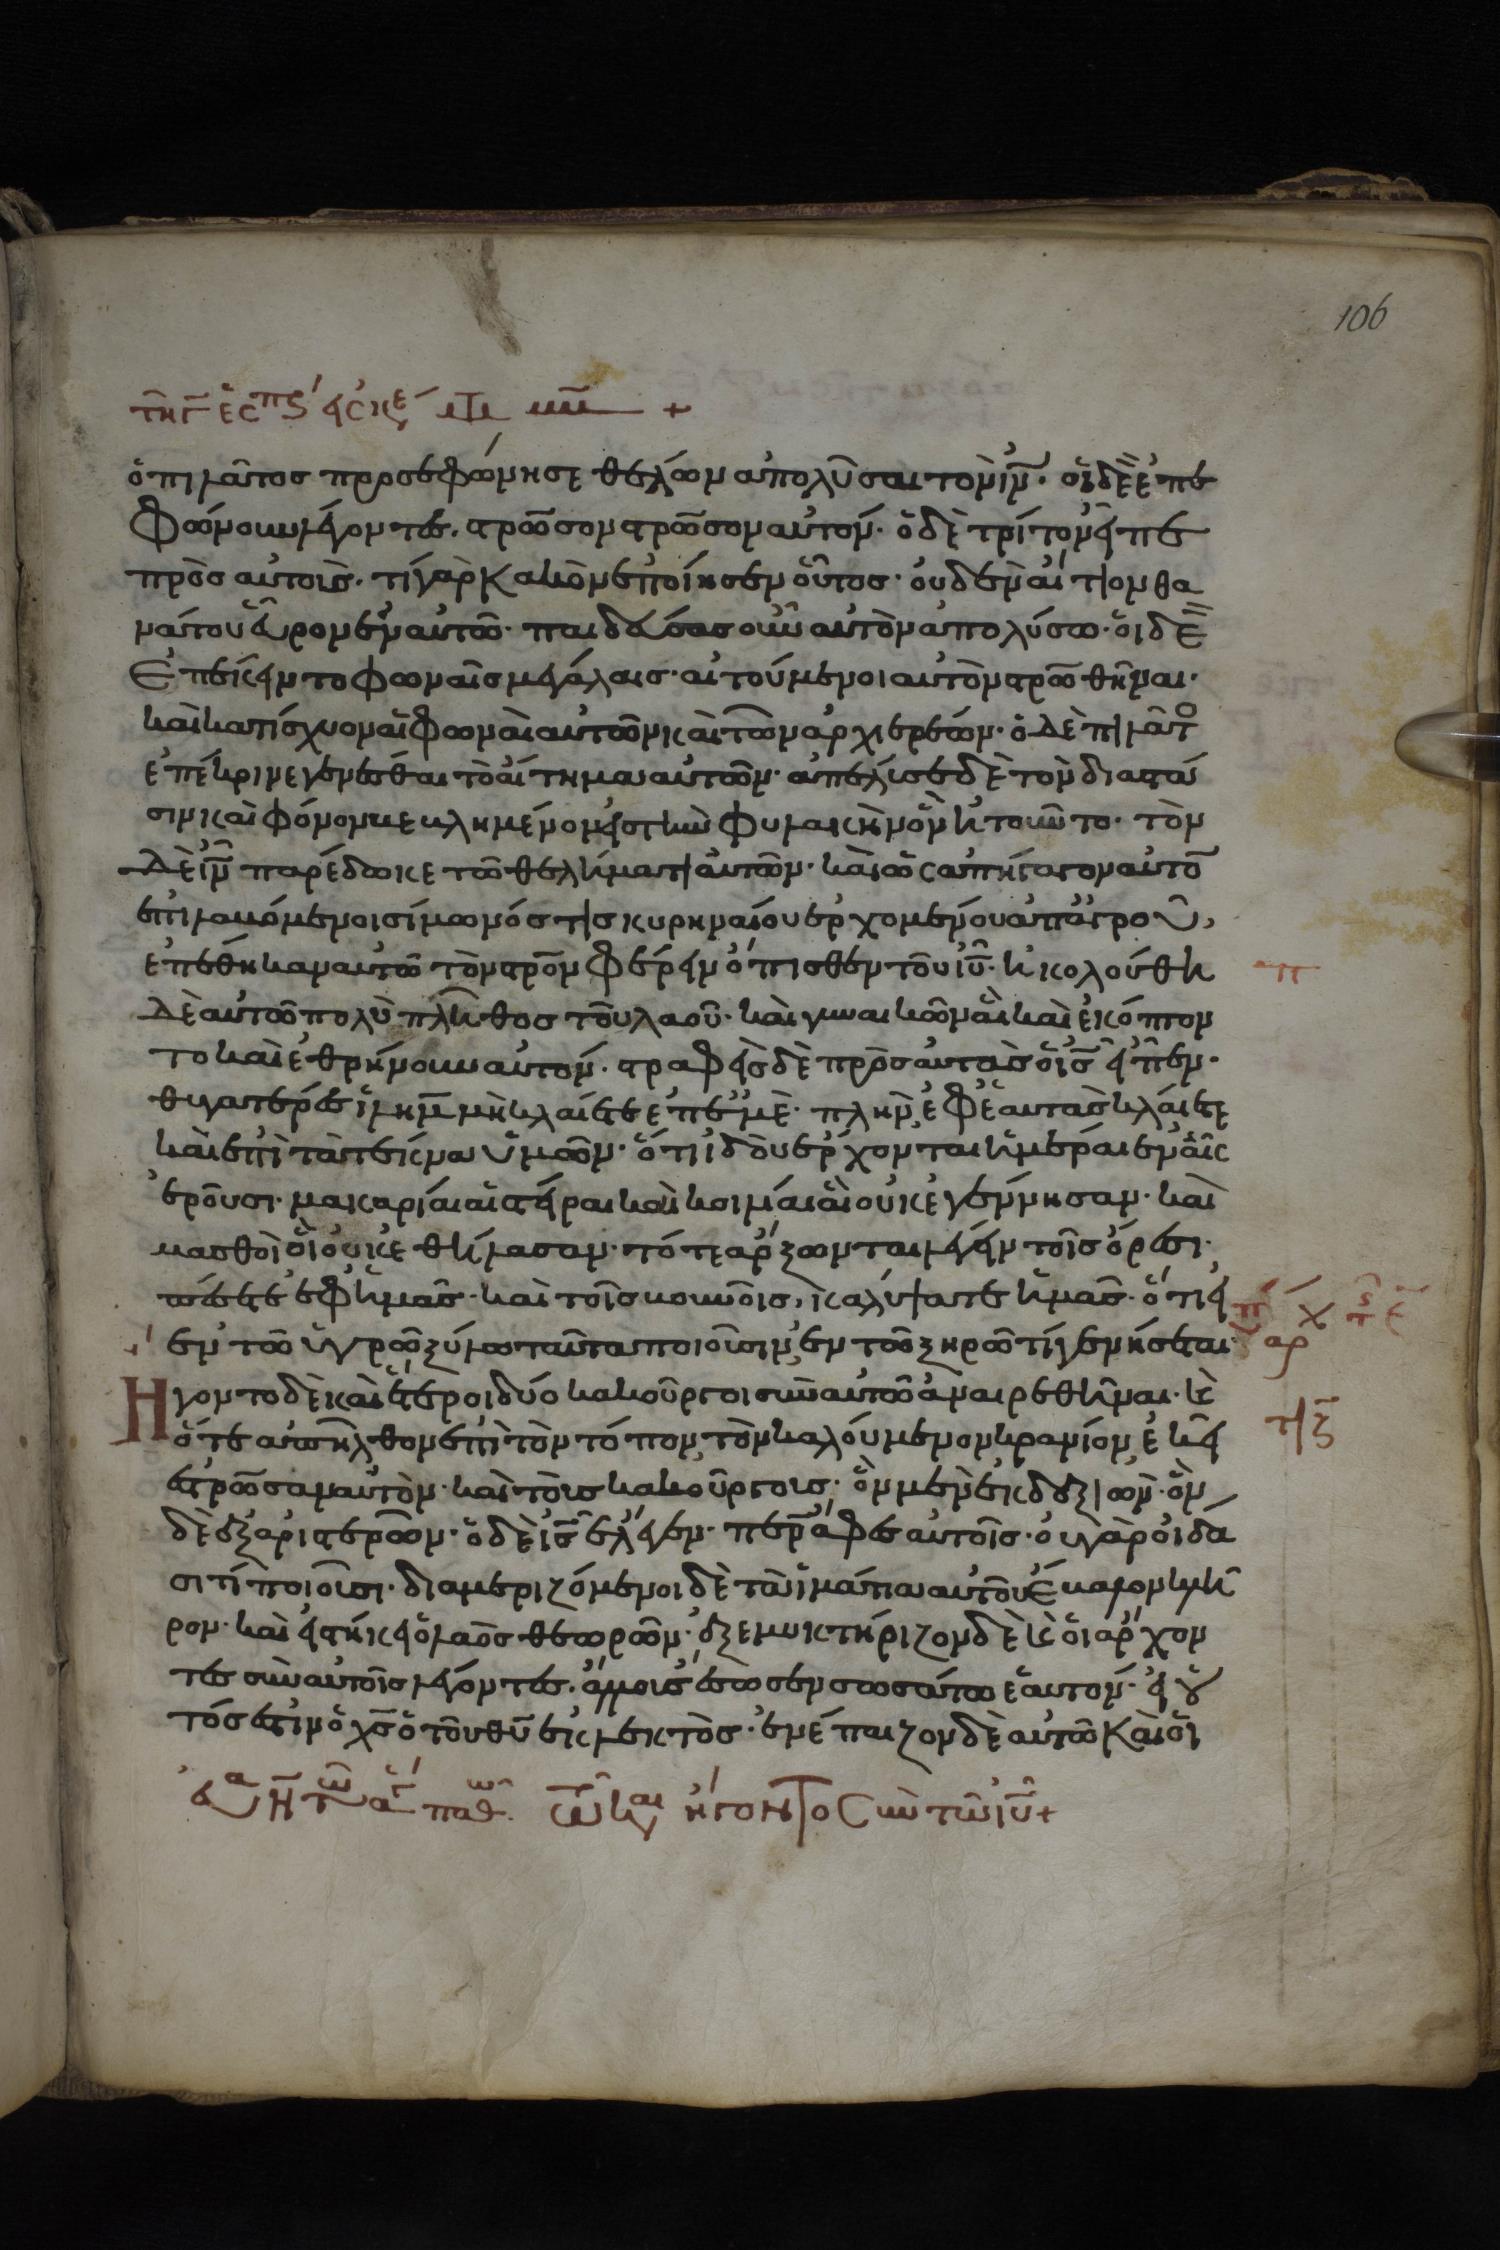 106
ὁ πιλάτος προσεφώνησε θέλων ἀπολῦσαι τὸν ἰν̅· οἱ δὲ ἐπε
φώνουν λέγοντες· στ(αύ)ρωσον στ(αύ)ρωσον αὐτόν· ὁ δὲ τρίτον εἶπε
πρὸς αὐτούς· τί γὰρ κακὸν ἐποίησεν οὗτος· οὐδὲν αἴτιον θα
νάτου εὗρον ἐν αὐτῶ· παιδεύσας οὖν αὐτὸν ἀπολύσω· οἱ δὲ
ἐπέκειντο φωναῖς μεγάλαις· αἰτούμενοι αὐτὸν στ̅ρωθῆναι·
καὶ κατίσχυον αἱ φωναὶ αὐτῶν καὶ τῶν ἀρχιερέων· ὁ δὲ πιλᾶτο
ἐπέκρινε γενέσθαι τὸ αἴτημα αὐτῶν· ἀπέλυσε δὲ τὸν διὰ στά
σιν καὶ φόνον βεβλημένον εἰς τὴν φυλακὴν ὃν ἠτοῦντο· τὸν
δὲ ἰν̅ παρέδωκε τῶ θελήματι αὐτῶν· καὶ ὡς ἀπήγαγον αὐτὸ
ἐπιλαβόμενοι σίμωνός τις κυρηναίου ἐρχομένου ἀπ' ἀγροῦ,
ἐπέθηκαν αὐτῶ τὸν στ̅ρον φέρειν ὄπισθεν τοῦ ιυ̅· ἠκολούθη
δὲ αὐτῶ πολὺ πλῆθος τοῦ λαοῦ· καὶ γυναικῶν αἳ καὶ ἐκόπτον
το καὶ ἐθρήνουν αὐτόν· στραφεὶς δὲ πρὸς αὐτὰς ὁ ις̅ εἶπεν·
θυγατέρες ἱλημ̅ μὴ κλαίετε ἐπ' ἐμὲ· πλὴν ἐφ' ἑαυτὰς κλαίετε
καὶ ἐπὶ τὰ τέκνα ὑμῶν· ὅτι ἰδοὺ ἔρχονται ἡμέραι ἐν αἷς
ἐροῦσι· μακαρίαι αἱ στεῖραι καὶ κοιλίαι αἳ οὐκ ἐγέννησαν· καὶ
μασθοὶ οἳ οὐκ ἐθήλασαν· τότε ἄρξωνται λέγειν τοῖς ὄρεσι·
πέσετε ἐφ' ἡμᾶς· καὶ τοῖς βουνοῖς, καλύψατε ἡμᾶς· ὅτι εἰ
ἐν τῶ ὑγρῶ ξύλω ταῦτα ποιοῦσιν, ἐν τῶ ξηρῶ τί γενήσεται·
Ηγοντο δὲ καὶ ἕτεροι δύο κακοῦργοι σὺν αὐτῶ ἀναιρεθῆναι· κ(αὶ)
ὅτε ἀπῆλθον ἐπὶ τὸν τόπον, τὸν καλούμενον κρανίον, ἐκεῖ
ἐστ̅ρωσαν αὐτὸν· καὶ τοὺς κακούργους· ὃν μὲν ἐκ δεξιῶν· ὃν
δὲ ἐξ ἀριστερῶν· ὁ δὲ ις̅ ἔλεγεν· περ̅ ἄφες αὐτοῖς· οὐ γὰρ οἴδα
σι τί ποιοῦσι· διαμεριζόμενοι δὲ τὰ ἱμάτια αὐτοῦ ἔβαλον κλῆ
ρον· καὶ εἱστήκει ὁ λαὸς θεωρῶν· ἐξεμυκτήριζον δὲ κ(αὶ) οἱ ἄρχον
τες σὺν αὐτοῖς λέγοντες· ἄλλους ἔσωσεν σωσάτω ἑαυτόν· εἰ οὗ
τός ἐστιν ὁ χς̅ ὁ τοῦ θυ̅ ἐκλεκτὸς· ἐνέπαιζον δὲ αὐτῶ καὶ οἱ